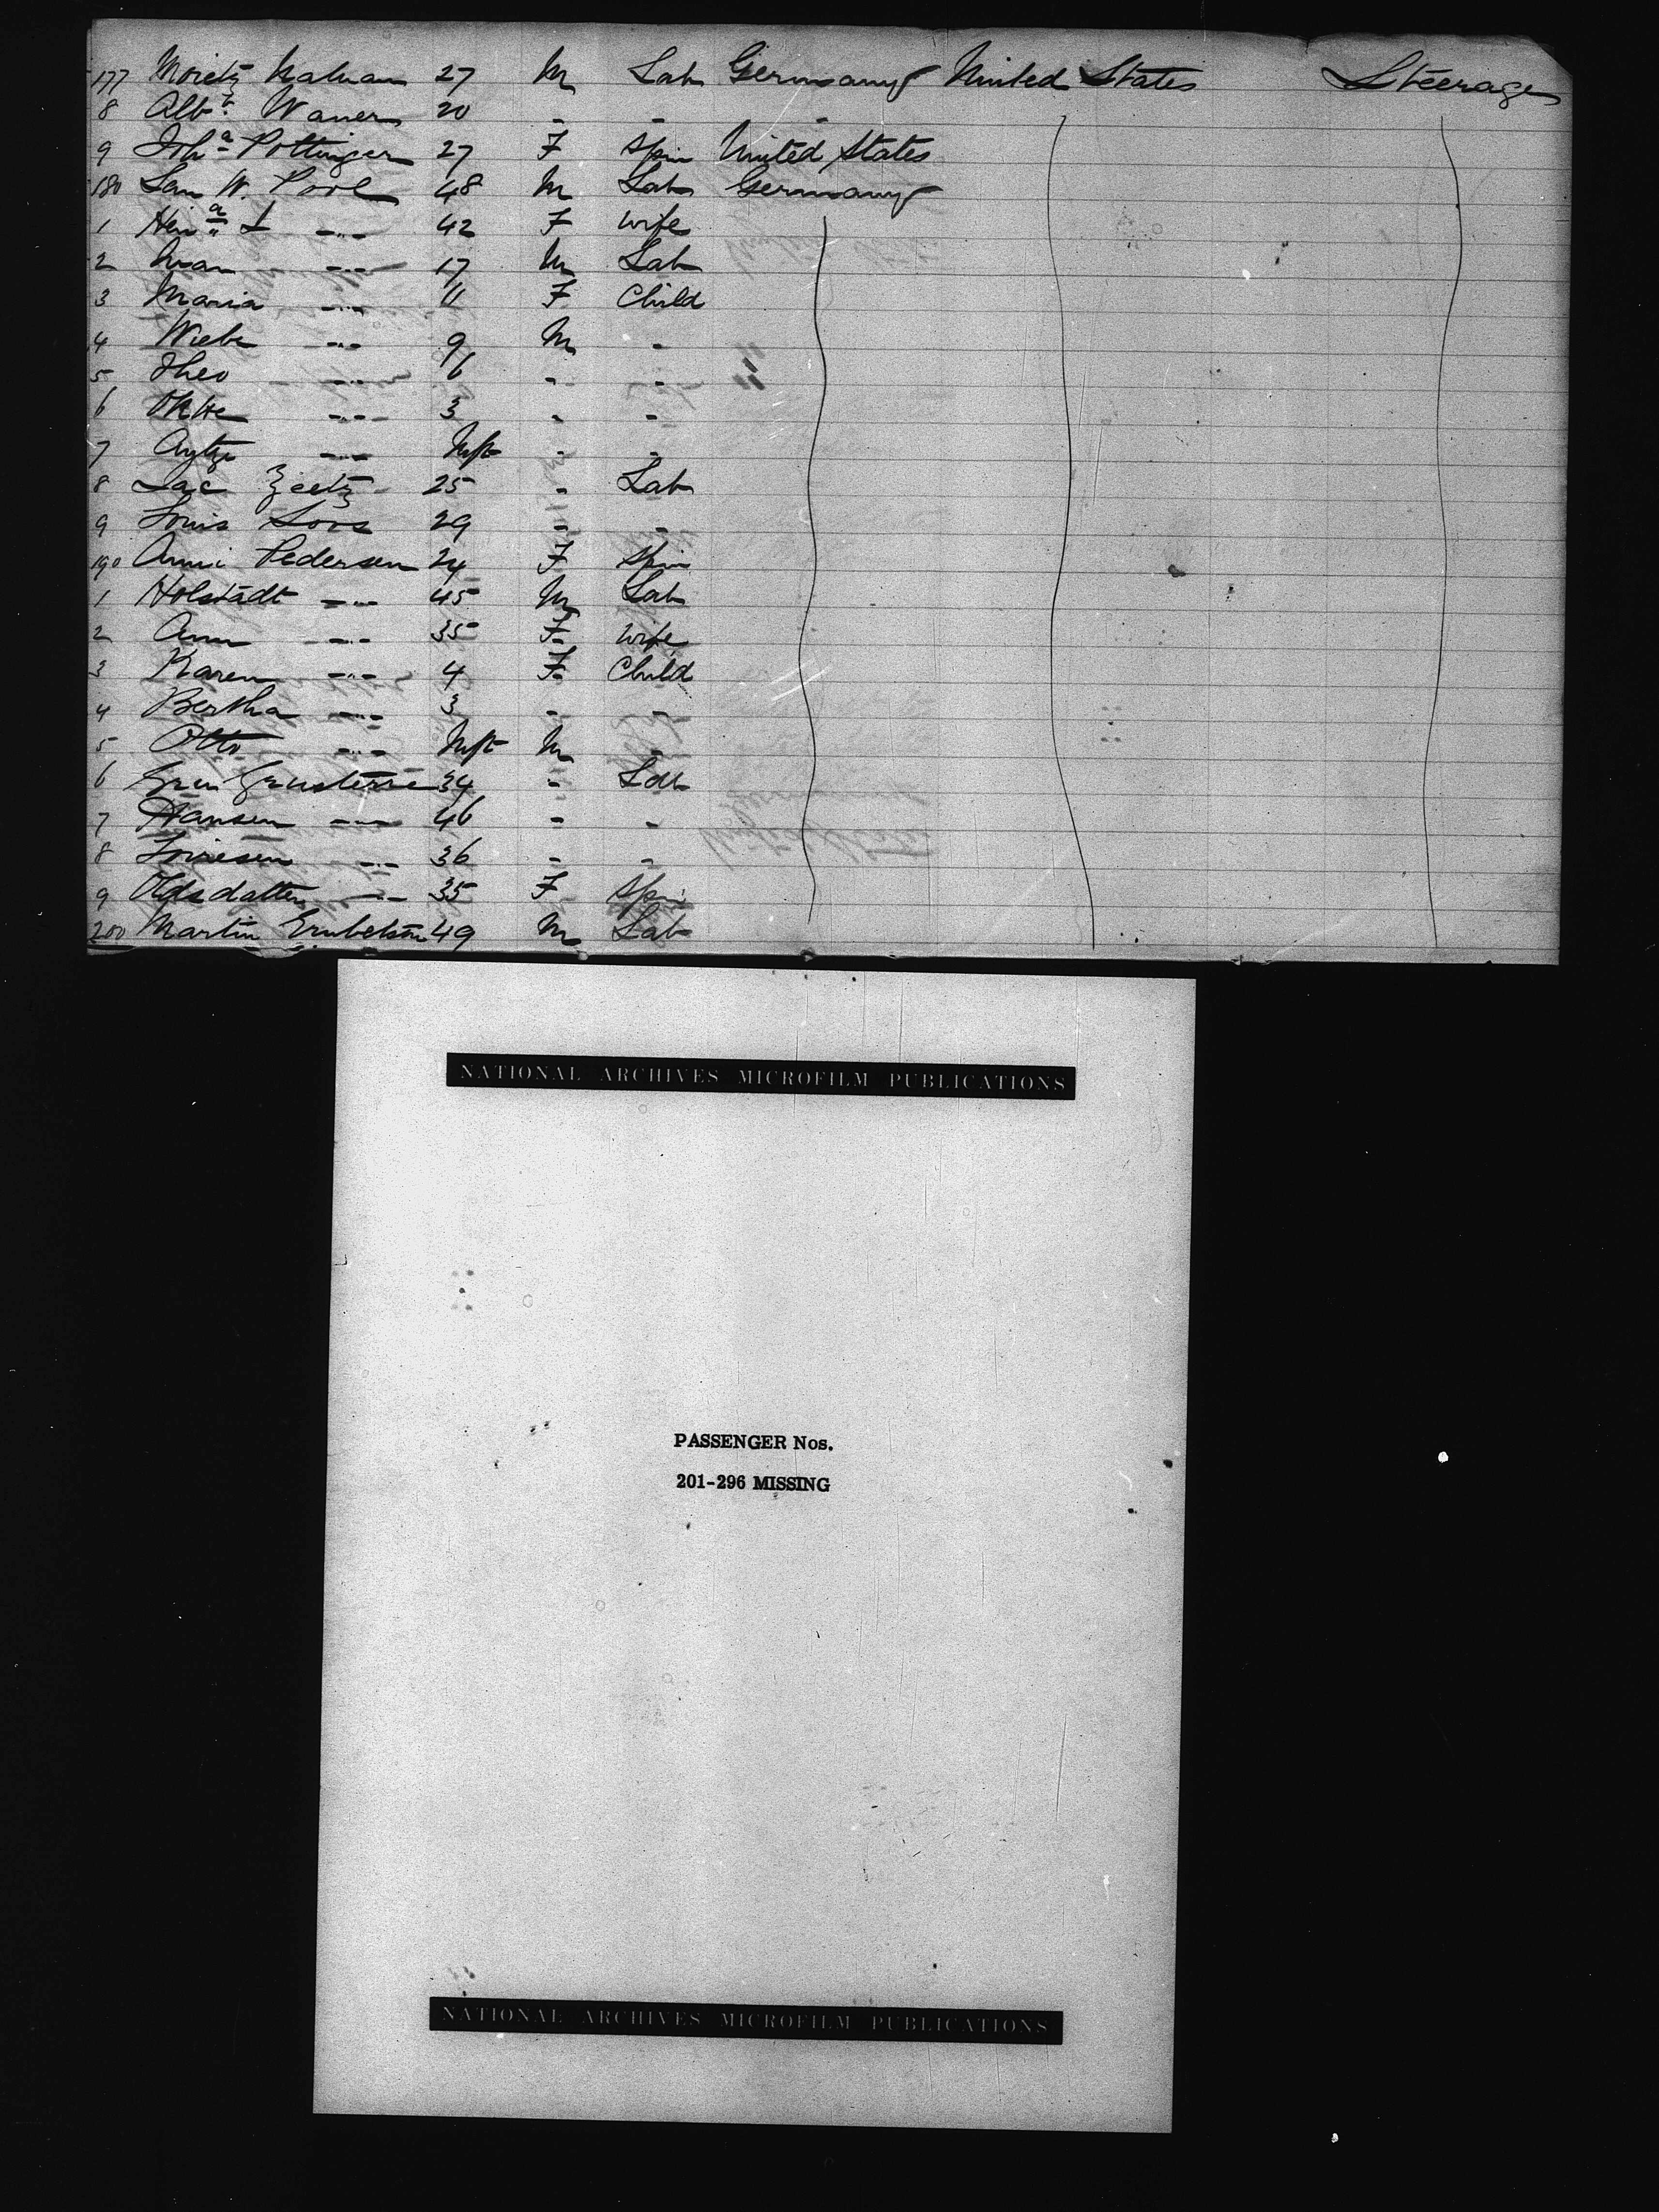 177 Moritz 27 M Lab Germany United States Steerage
8 Alb.t Waner 20 - - -
9 Joh.a Pottinger 27 F Spin United States
180 W. Pool 48 M Lab Germany
1 Hein.a L -"- 42 F wife
2 -"- 17 M Lab
3 Maria -"- 11 F Child
4 Wiebe -"- 9 M -
5 Theo -"- 6 - -
6 Okke -"- 3 - -
7 -"- Inft - -
8 Jac 25 - Lab
9 Louis Loos 29 - -
190 Anni Pedersen 24 F Spin
1 Holstadt -"- 45 M Lab
2 Ann -"- 35 F wife
3 Karen -"- 4 F Child
4 Bertha -"- 3 - -
5 Otto -"- Inft M -
6 34 - Lab
7 Hansen -"- 46 - -
8 -"- 36 - -
9 -"- 35 F Spin
200 Martin 49 M Lab
NATIONAL ARCHIVES MICROFILM PUBLICATIONS
PASSENGER Nos.
201-296 MISSING
NATIONAL ARCHIVES MICROFILM PUBLICATIONS